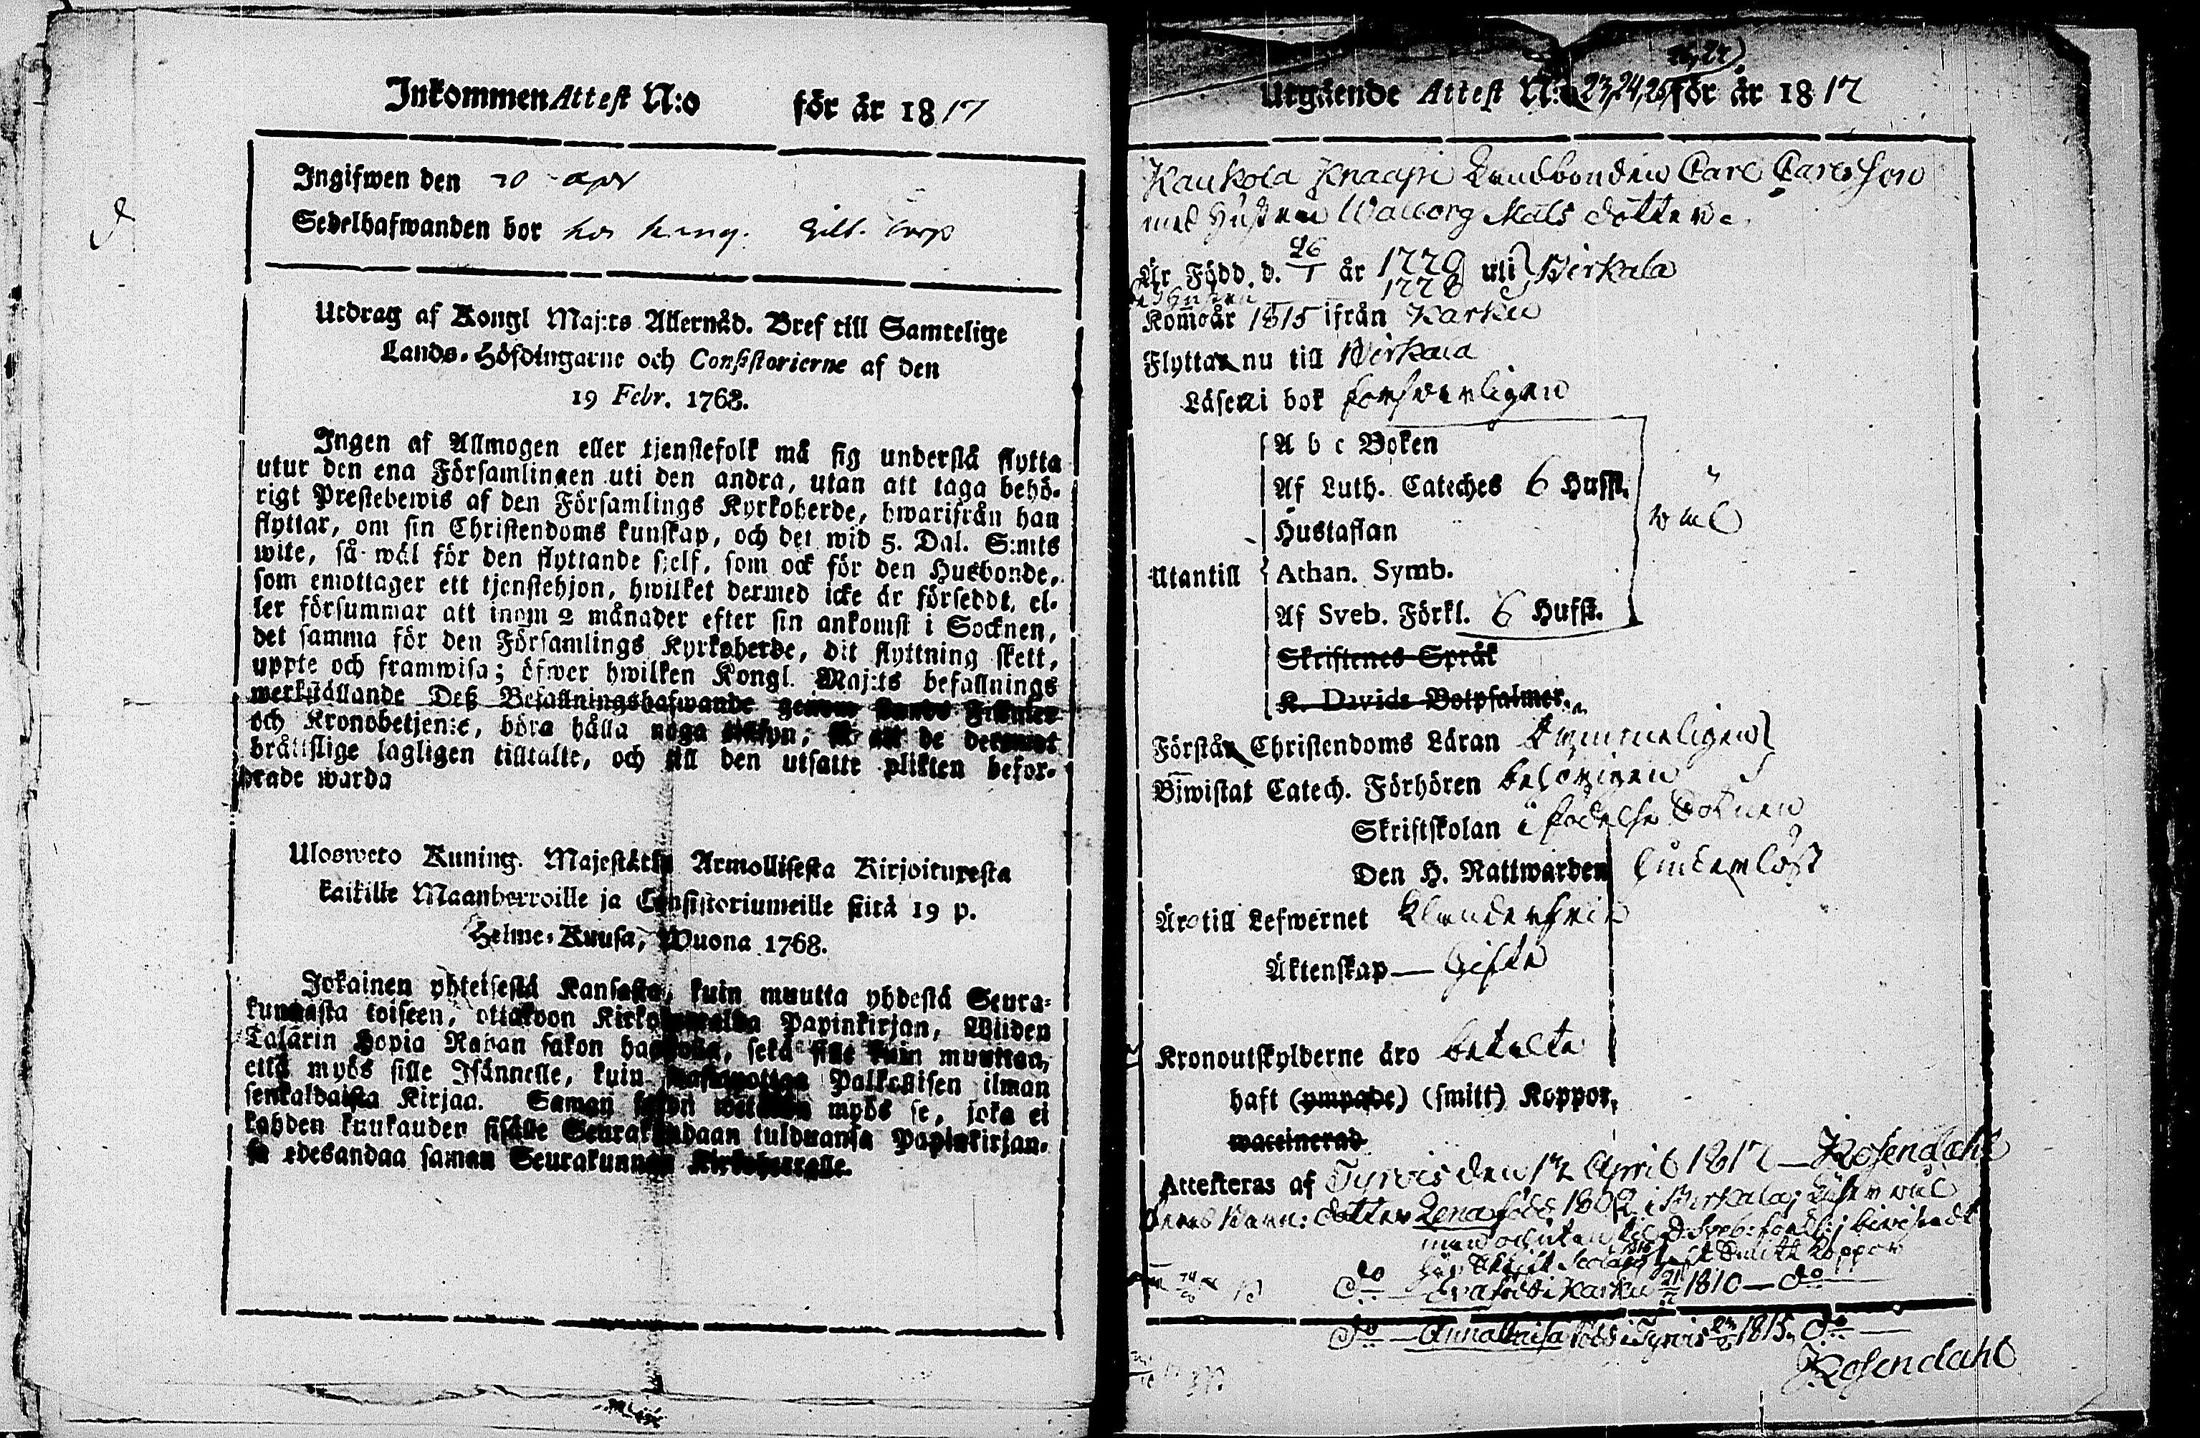 Inkommen Attest N:o för år 1817
Ingifwen den 20 apr
Sedelhafwanden bor hos
Utdrag af Kongl Maj:ts Allernåd. Bref till Samtelige
Lands-Höfdingarne och Consistorierne af den
19 Febr. 1768.
Ingen af Allmogen eller tjenstefolk må sig understå flytta
utur den ena Församlingen uti den andra, utan att taga behö-
rigt Prestebewis af den Församlings Kyrkoherde, hwarifrån han
flyttar, om sin Christendoms kunskap, och det wid 5. Dal. S:mts
wite, så wäl för den flyttande sjelf, som ock för den Husbonde,
som emottager ett tjenstehjon, hwilket dermed icke är försedt, el-
ler försummar att inom 2 månader efter sin ankomst i Socknen,
det samma för den Församlings Kyrkoherde, dit flyttning skett,
uppte och framwisa; öfwer hwilken Kongl. Maj:ts befallnings
werkställande Deß Befallningshafwande
och Kronobetjente, böra hålla noga de
bråttslige lagligen tilltalte, och till den utsatte plikten befor-
drade warda
Ulosweto Kuning. Majestätin Armollisesta Kirjoituxesta
kaikille Maanherroille ja Consistoriumeille siitä 19 p.
Helme-Kuusa, Wuona 1768.
Jokainen yhteisestä Kansasta, kuin muutta yhdestä Seura-
kunnasta toiseen, ottakoon Papinkirjan, Wiiden
Talarin Hopia Rahan sakon sekä sille kuin muuttaa,
että myös sille Isännelle, kuin Palkollisen ilman
senkaldaista Kirjaa. Saman myös se, joka ei
kahden kuukauden sisälle Seurakundaan tulduansa Papinkirjan-
sa edesandaa saman Seurakunnan Kirkoherralle.
Utgående Attest N:o 23, 24, 25, för år 1817
Kaukola Knaapi Landbonden Carl Carlsson
med Hustru Walborg Mats dotter
Är Född d. 26/1 år 1770 uti Birkala
1778
Kom⁠o år 1815 ifrån Karku
Flytta nu till Birkala
Läser i bok försvarligen
A b c Boken
Af Luth. Cateches 6 Hufst.
Hustaflan
Utantill Athan. Symb.
wäl
Af Sveb. Förkl. 6 Hufst.
Skriftenes Språk
K. Davids Botpsalmer.
Förstår Christendoms Läran
Biwistat Catech. Förhören behörigen
Skriftskolan i födelse Socknen
Den H. Nattwarden
Äro till Lefwernet klanderfria
Äktenskap — Gifta
Kronoutskylderne äro betalte
haft (ympade) (smitt) Koppor,
waccinerad
Attesteras af Tyrvis den 12 April 1817 — J Rosendahl
Deras Barn: dotter Lena född 1802 i Birkala; Läser wäl
do — Eva född i Karku 1810 — do
do — Anna Caisa född i Tyrvis 1815, do —
J Rosendahl